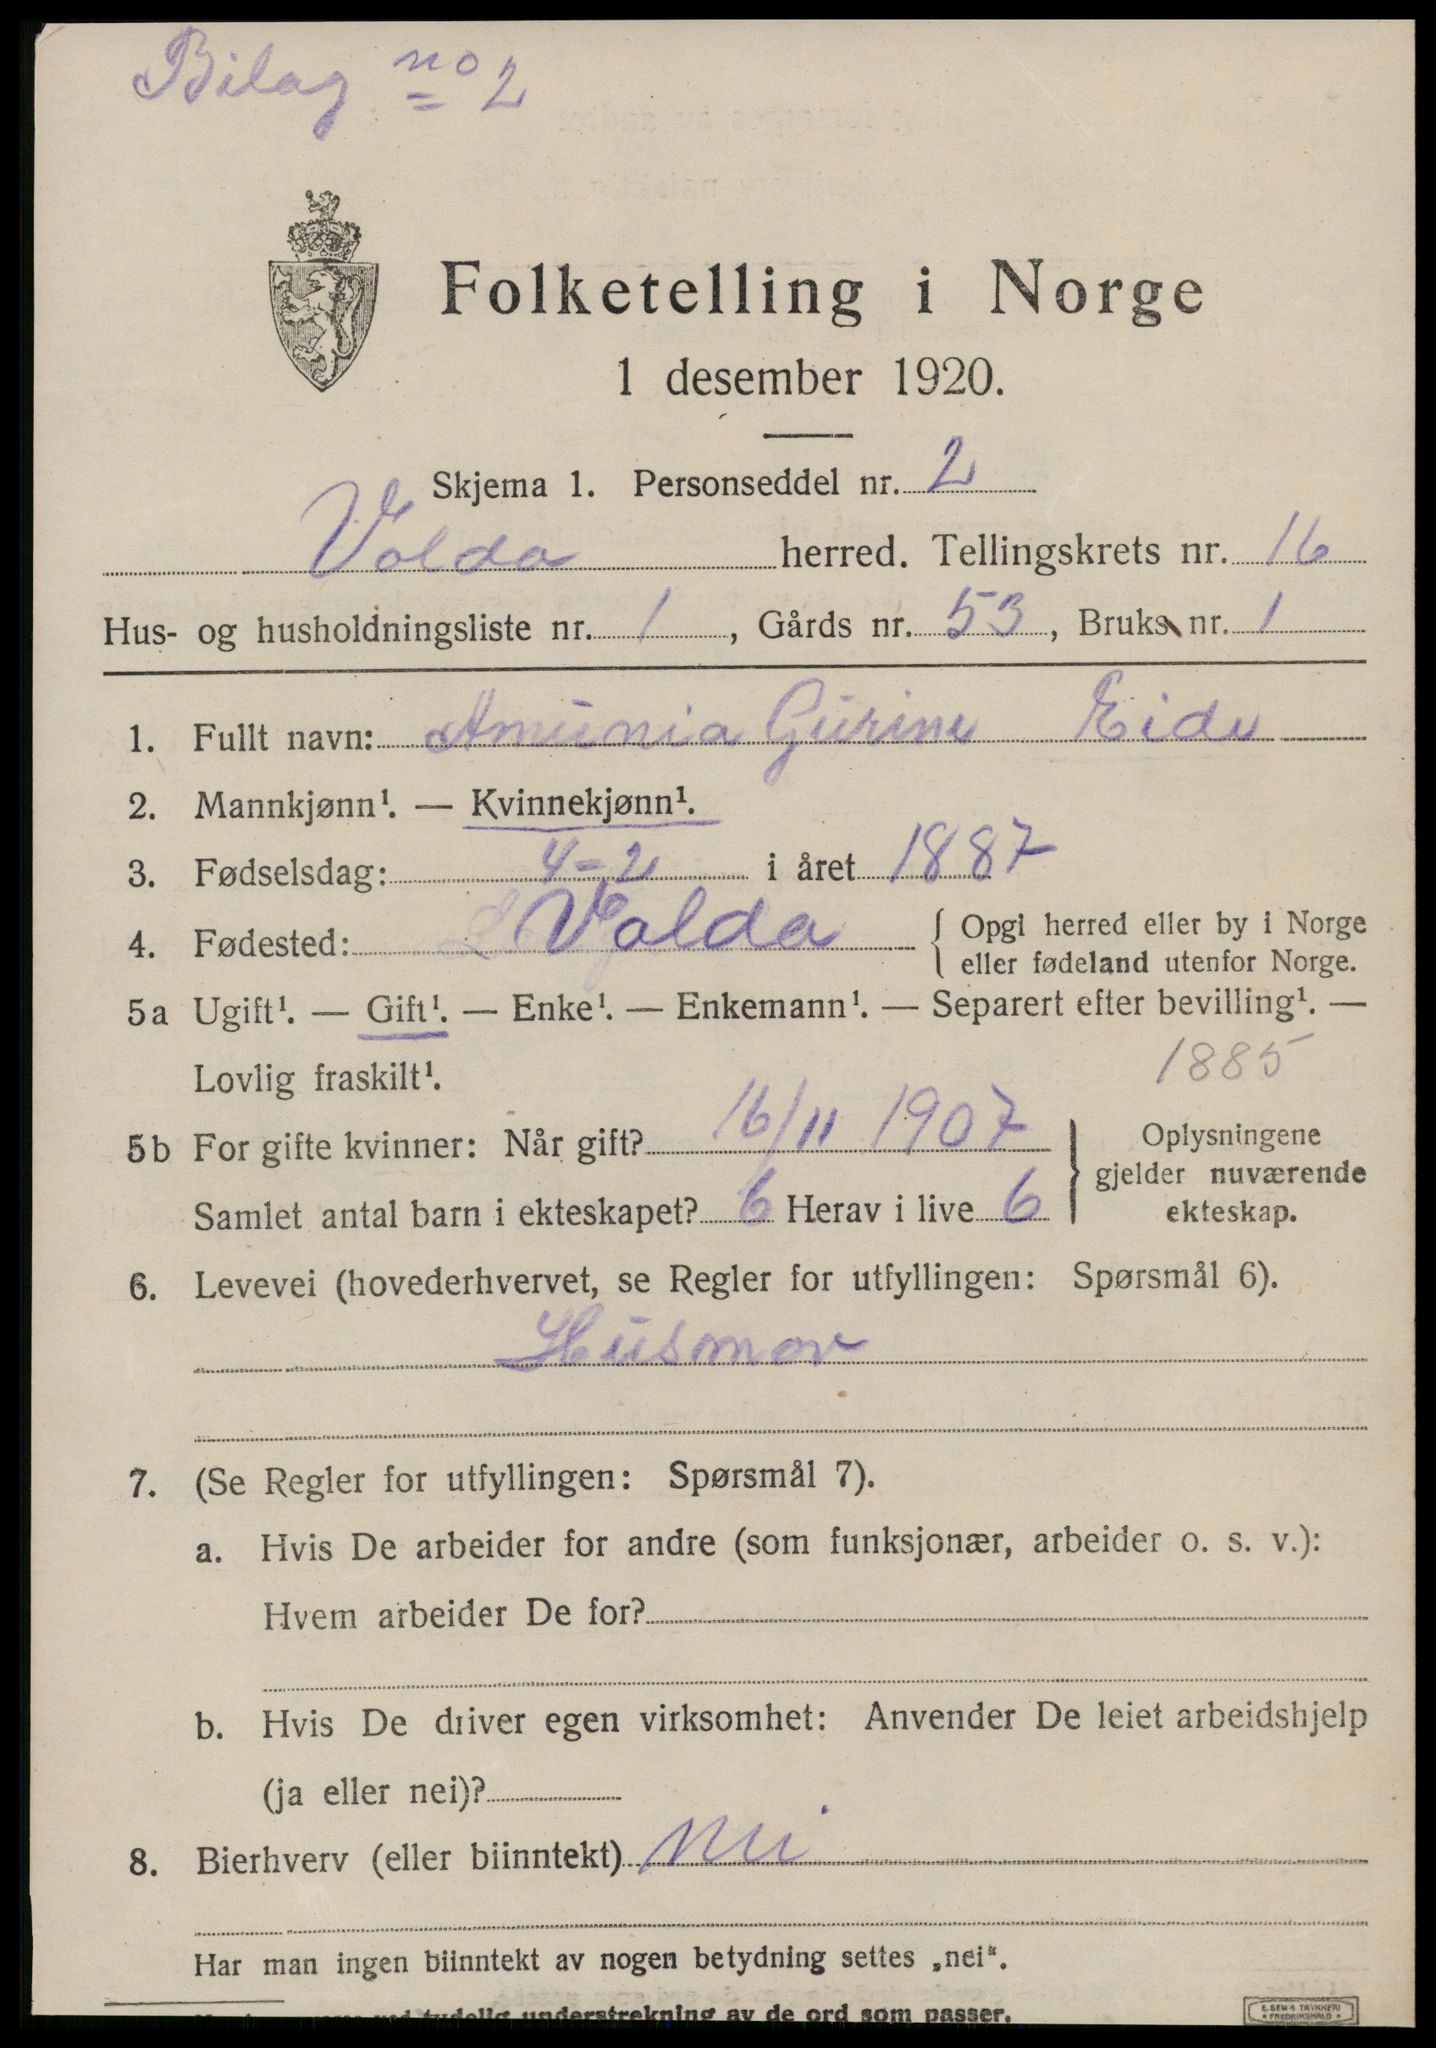 Bilag no 2
Folketelling i Norge
1 desember 1920.
Skjema 1. Personseddel nr. 2
Volda herred. Tellingskrets nr. 16
Hus- og husholdningsliste nr. 1, Gårds nr. 53, Bruks nr. 1
1. Fullt navn: Amunia Gurine Eide
2. Mannkjønn¹. — Kvinnekjønn¹.
3. Fødselsdag: 4-2 i året 1887
4. Fødested: Volda { Opgi herred eller by i Norge
eller fødeland utenfor Norge.
5a Ugift¹. — Gift¹. — Enke¹. — Enkemann¹. — Separert efter bevilling¹. —
Lovlig fraskilt¹. 1885
5b For gifte kvinner: Når gift? 16/11 1907
Samlet antal barn i ekteskapet? 6 Herav i live 6
} Oplysningene
gjelder nuværende
ekteskap.
6. Levevei (hovederhvervet, se Regler for utfyllingen: Spørsmål 6).
Husmor
7. (Se Regler for utfyllingen: Spørsmål 7).
a. Hvis De arbeider for andre (som funksjonær, arbeider o. s. v.):
Hvem arbeider De for?
b. Hvis De driver egen virksomhet: Anvender De leiet arbeidshjelp
(ja eller nei)?
8. Bierhverv (eller biinntekt) nei
Har man ingen biinntekt av nogen betydning settes „nei“.
tydelig understrekning av de ord som passer.
E. SEM A. TRYKKERI
FREDRIKSHALD